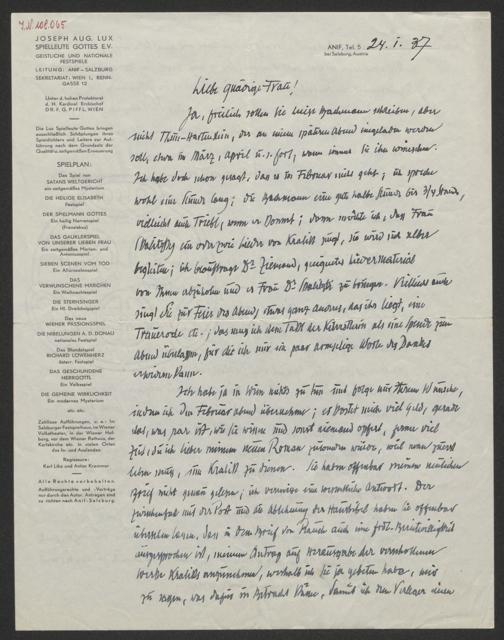 J.N. 108.065
JOSEPH AUG. LUX
SPIELLEUTE GOTTES E.V.
GEISTLICHE UND NATIONALE
FESTSPIELE
LEITUNG: ANIF – SALZBURG
SEKRETARIAT: WIEN I., RENN-
GASSE 12
Unter d. hohen Protektorat
d. H. Kardinal Erzbischof
DR. F. G. PIFFL, WIEN
Die Lux Spielleute Gottes bringen
SPIELPLAN:
Das Spiel von
SATANS WELTGERICHT
ein zeitgemäßes Mysterium
DIE HEILIGE ELISABETH
Festspiel
DER SPIELMANN GOTTES
Ein heilig Narrenspiel
(Franziskus)
DAS GAUKLERSPIEL
VON UNSERER LIEBEN FRAU
Ein zeitgemäßes Marien- und
SIEBEN SZENEN VOM TOD
Ein Allerseelenspiel
DAS
VERWUNSCHENE MÄRCHEN
Ein Weihnachtsspiel
DIE STERNSINGER
Ein Hl. Dreikönigspiel
Das neue
WIENER PASSIONSSPIEL
DIE NIBELUNGEN A. D. DONAU
nationales Festspiel
RICHARD LÖWENHERZ
österr. Festspiel
DAS GESCHUNDENE
HERRGOTTL
Ein Volksspiel
DIE GEMEINE WIRKLICHKEIT
Ein modernes Mysterium
etc. etc.
Zahllose Aufführungen, u. a.: Im
Salzburger Festspielhaus, im Wiener
Volkstheater, in der Wiener Hof-
burg, vor dem Wiener Rathaus, der
Karlskirche etc. in vielen Orten
des In- und Auslandes
Regisseure:
Karl Like und Anton Krammer
Alle Rechte vorbehalten
Aufführungsrechte und -Verträge
nur durch den Autor. Anfragen sind
zu richten nach Anif-Salzburg.
ANIF, Tel. 5
bei Salzburg, Austria
24. I. 37
Liebe gnädige Frau!
Ja, freilich sollen Sie Luise Hackmann schreiben, aber
nicht, der an einem späteren Abend eingeladen werden
soll, etwa im März, April u.s.fort, wann immer Sie ihn wünschen.
Ich habe doch schon gesagt, daß es im Februar nicht geht; ich spreche
wohl eine Stunde lang; die eine gute halbe Stunde bis 3/4 Stund,
vielleicht auch Triebl, wenn er kommt; dann möchte ich, daß Frau
ein oder zwei Lieder von Kralik singt, sie wird sich selber
begleiten; ich beauftrage Dr Ziemand, geeignetes Liedermaterial
von Ihnen abzuholen und es Frau Dr zu bringen. Vielleicht auch
singt sie zur Feier des Abends, etwas ganz anderes, das ihr liegt, eine
Trauerode etc.; das muß ich dem Takt der Künstlerin als eine Spende zum
Abend überlassen, für die ich nur ein paar armselige Worte des Dankes
erwidern kann.
Ich habe ja in Wien nichts zu tun und folge nur Ihrem Wunsche,
indem ich den Februarabend übernehme; es kostet mich viel Geld, gerade
das, was rar ist, wie Sie wissen und sonst niemand opfert, ferner viel
Zeit, die ich lieber meinem neuen Roman zuwenden würde, weil man zuerst
leben muß, um Kralik zu dienen. Sie haben offenbar meinen neulichen
Brief nicht genau gelesen; ich vermisse eine wesentliche Antwort. Der
mit der Post und die Ablehnung der haben Sie offenbar
übersehen lassen, daß in dem Brief von auch eine
ausgesprochen ist, meinen Antrag auf Herausgabe der verschollenen
Werke Kraliks anzunehmen, weshalb ich Sie ja gebeten habe, mir
zu sagen, was dafür in Betracht käme, damit ich dem Verleger einen